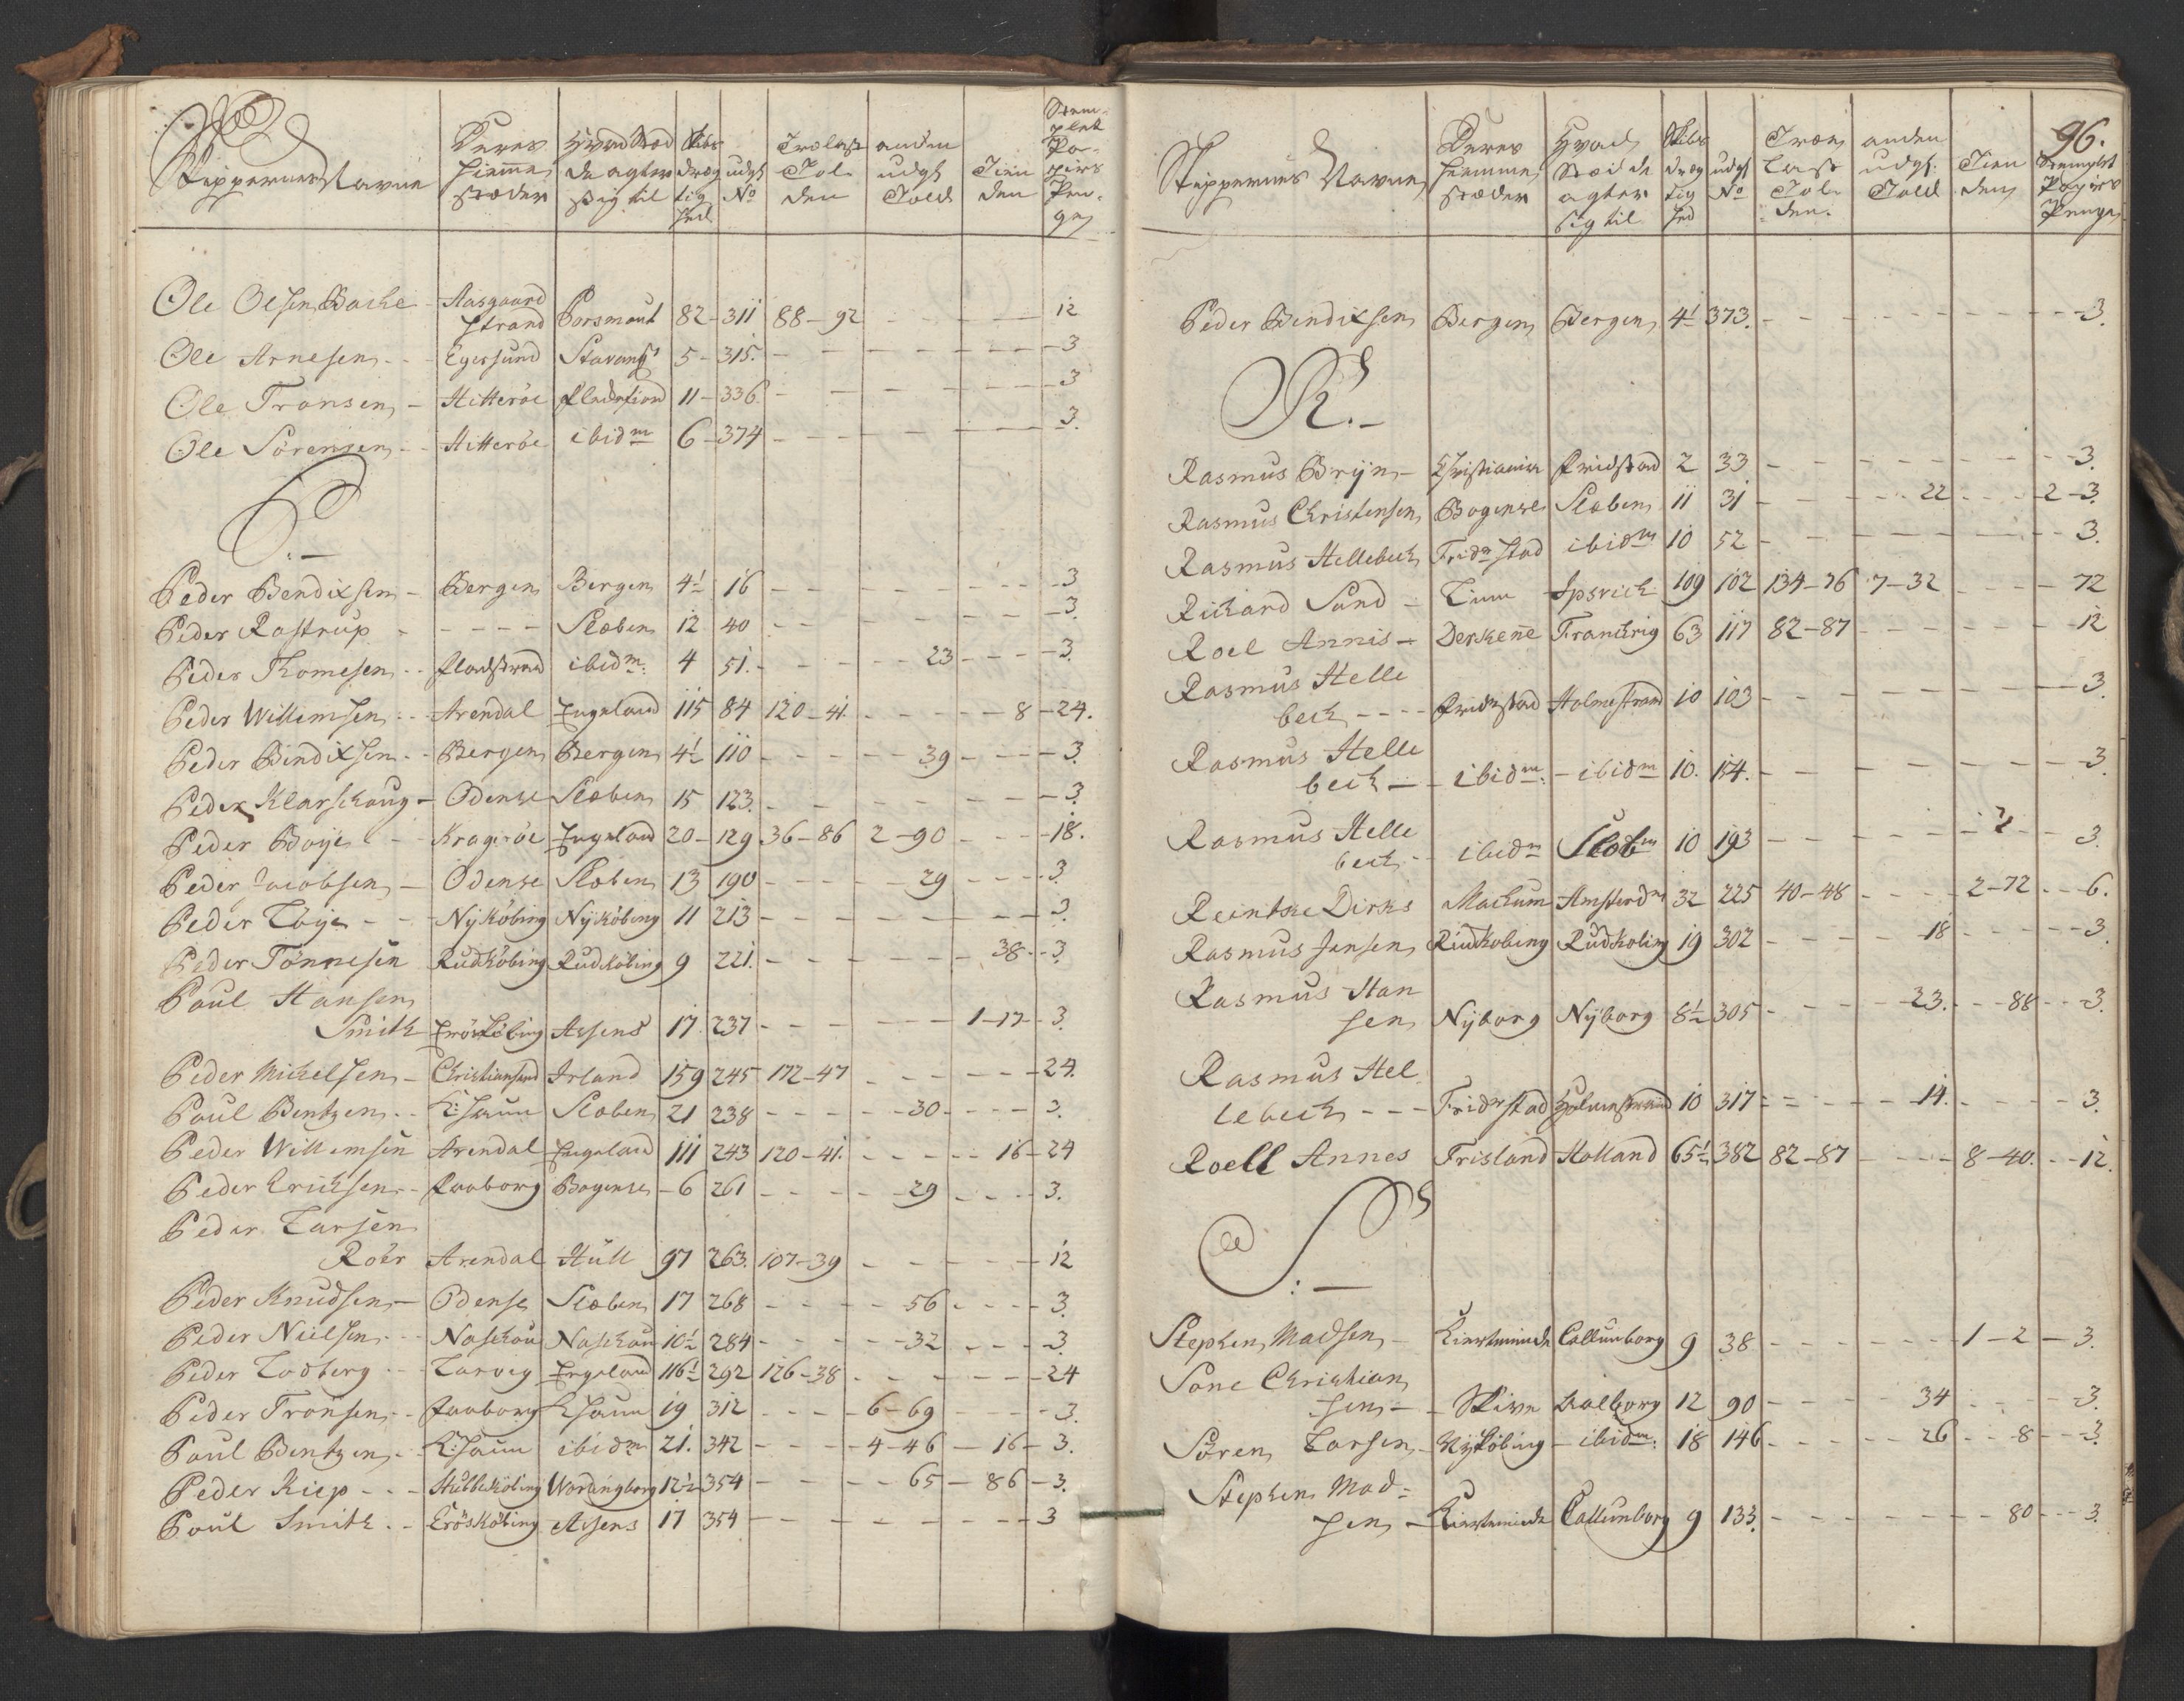 Skippernes Navne | Deres Hiemme stæder | Hvad Stæd de agter sig til | Skibs Dræg tig hed | udgl No | Trælast Tol den | anden udgl Told | Tien den | Stem plet Pa- pirs Pen- ge
Ole Olsen Bache - Aasgaard strand Porsmout 82 - 311 88-92 12
Ole Arnesen - Egersund Stavang 5 - 315. 3
Ole Tronsen - Hitterøe 11 - 336 3
Ole Sørensen - Hitterøe ibidm 6 - 374 3.
P.
Peder Bendixsen - Bergen Bergen 4½ 16 3
Peder Rostrup - - - - Sleben 12 40 3.
Peder Thomesen - Fladstrand ibidm. 4 51. 23 3.
Peder Willemsen - Arendal Engeland 115 84 120-41. 8 - 24.
Peder Bendixsen - Bergen Bergen 4½ 110 39 3.
Peder Klarschoug - Odense Sleben 15 123. 3.
Peder Boye - Kragerøe Engeland 20 - 129 36-86 2-90 18.
Peder Jacobsen - Odense Sleben 13 190 29 3.
Peder Loye - Nykøbing Nykøbing 11 213 3.
Peder Tønnesen Rudkøbing Rudkøbing 9 221. 38 - 3.
Poul Hansen
Smith Erøskøbing Assens 17. 237 1-17 - 3.
Peder Michelsen - Christiansand Irland 159 245 172-47 24.
Poul Bentzen - K:haun Sleben 21 238 30 3.
Peder Willemsen Arendal Engeland 111 243 120-41. 16 - 24
Peder Erichsen - Faaborg Bogense - 6 261 29 3.
Peder Larsen
Roer Arendal Hull 97 263. 107-39 12
Peder Knudsen - Odense Sleben 17 268 56 3.
Peder Nielsen - Naschou Naschou 10½ 284 32 3.
Peder Lodberg - Larvig Engeland 116½ 292 126-38 24
Peder Tronsen - Faaborg Khaun 19 312 6-69 3.
Poul Bentzen - K:haun ibidm 21. 342 4-46 - 16 - 3.
Peder Kiep - Stubbekøbing Wordingborg 12½ 354 65 - 86 - 3.
Poul Smith - Erøskøbing Assens 17 354 3
96.
Skippernes Navne | Deres Hiemme stæder | Hvad Stæd de agter sig til | Skibs Dræg tig hed | udgl No | Træ last Tol den. | anden udgl. Told | Tien den | Stemplet Papirs Penge
Peder Bendixsen Bergen Bergen 4½ 373. 3.
R.
Rasmus Bryn - Christiania Fridstad 2 33 3.
Rasmus Christensen Bogense Sleben 11 31 22 2-3.
Rasmus Hellebech Fridr stad ibidm 10 52 3.
Richard Sand - Ipsvich 109 102 134-76 7-32 72
Roel Annis - 63 117 82-87 12
Rasmus Helle
bech - - - Fridrstad Holmestrand 10 103 3.
Rasmus Helle
bech - ibidm. - ibidm 10. 154. 3.
Rasmus Helle
bech - ibidm Slebn 10 193 3.
Reintske Dirks Mackum Amsterdm 32 225 40-48 2-72 6.
Rasmus Jensen Rudkobing Rudkobing 19 302 18 3.
Rasmus Han
sen Nyborg Nyborg 8½ 305 23. 88 3.
Rasmus Hel
lebech - - - Fridrstad Holmestrand 10 317 14. 3.
Roell Annes Frisland Holland 65½ 382 82-87 8-40. 12.
S.
Stephen Madsen - Kierteminde Callunborg 9 38 1-2 - 3.
Søne Christian
sen - Skive Aalborg 12 90 34 3.
Søren Larsen - Nykøbing - ibidm. 18 146 26 8 3.
Stephen Mad=
sen - Kierteminde Callunborg 9 133. 80 3.